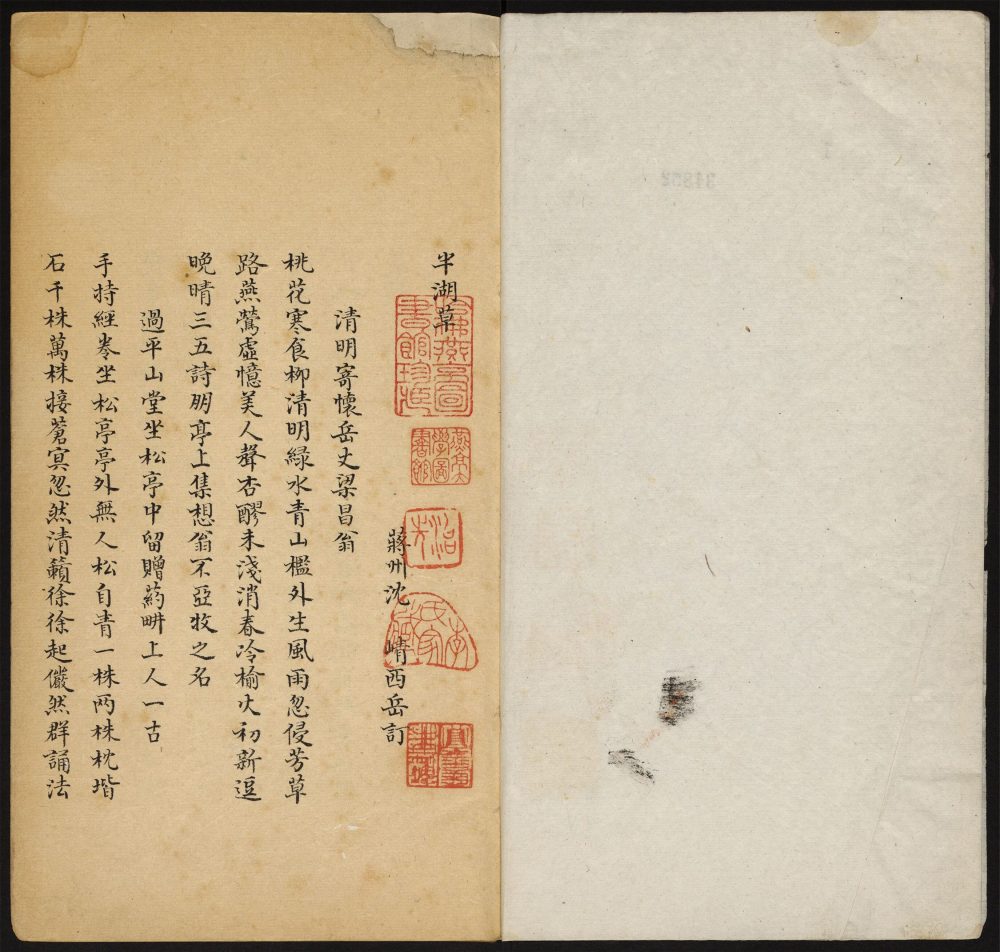 半湖草
蔣州沈 崝西岳訂
清明寄懷岳丈梁昌翁
桃花寒食柳清明綠水青山檻外生風雨忽侵芳草
路燕鶯虛憶美人聲杏醪未淺消春冷榆火初新逗
晚晴三五詩朋亭上集想翁不亞牧之名
過平山堂坐松亭中留贈葯畊上人一古
手持經卷坐松亭亭外無人松自青一株兩株枕堦
石千株萬株接蒼冥忽然清籟徐徐起儼然群誦法
燕京大學圖書館